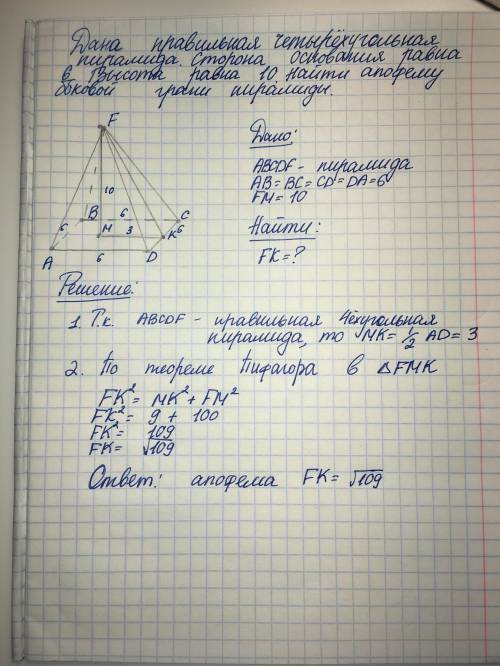 Дана правильная четырёхугольная
пирамида. Сторона основания равна
6. Высота равна 10. Найти апофему
боковой грани пирамиды.
F
Дано:
ABCDF - пирамида
AB = BC = CD = DA = 6
FM = 10
Найти:
FK = ?
10
B 6 C
6 M 3 K 6
A 6 D
Решение:
1. Т.к. ABCDF - правильная 4ёхугольная
пирамида, то MK = 1/2 AD = 3
2. По теореме Пифагора в △FMK
FK² = MK² + FM²
FK² = 9 + 100
FK² = 109
FK = √109
Ответ: апофема FK = √109